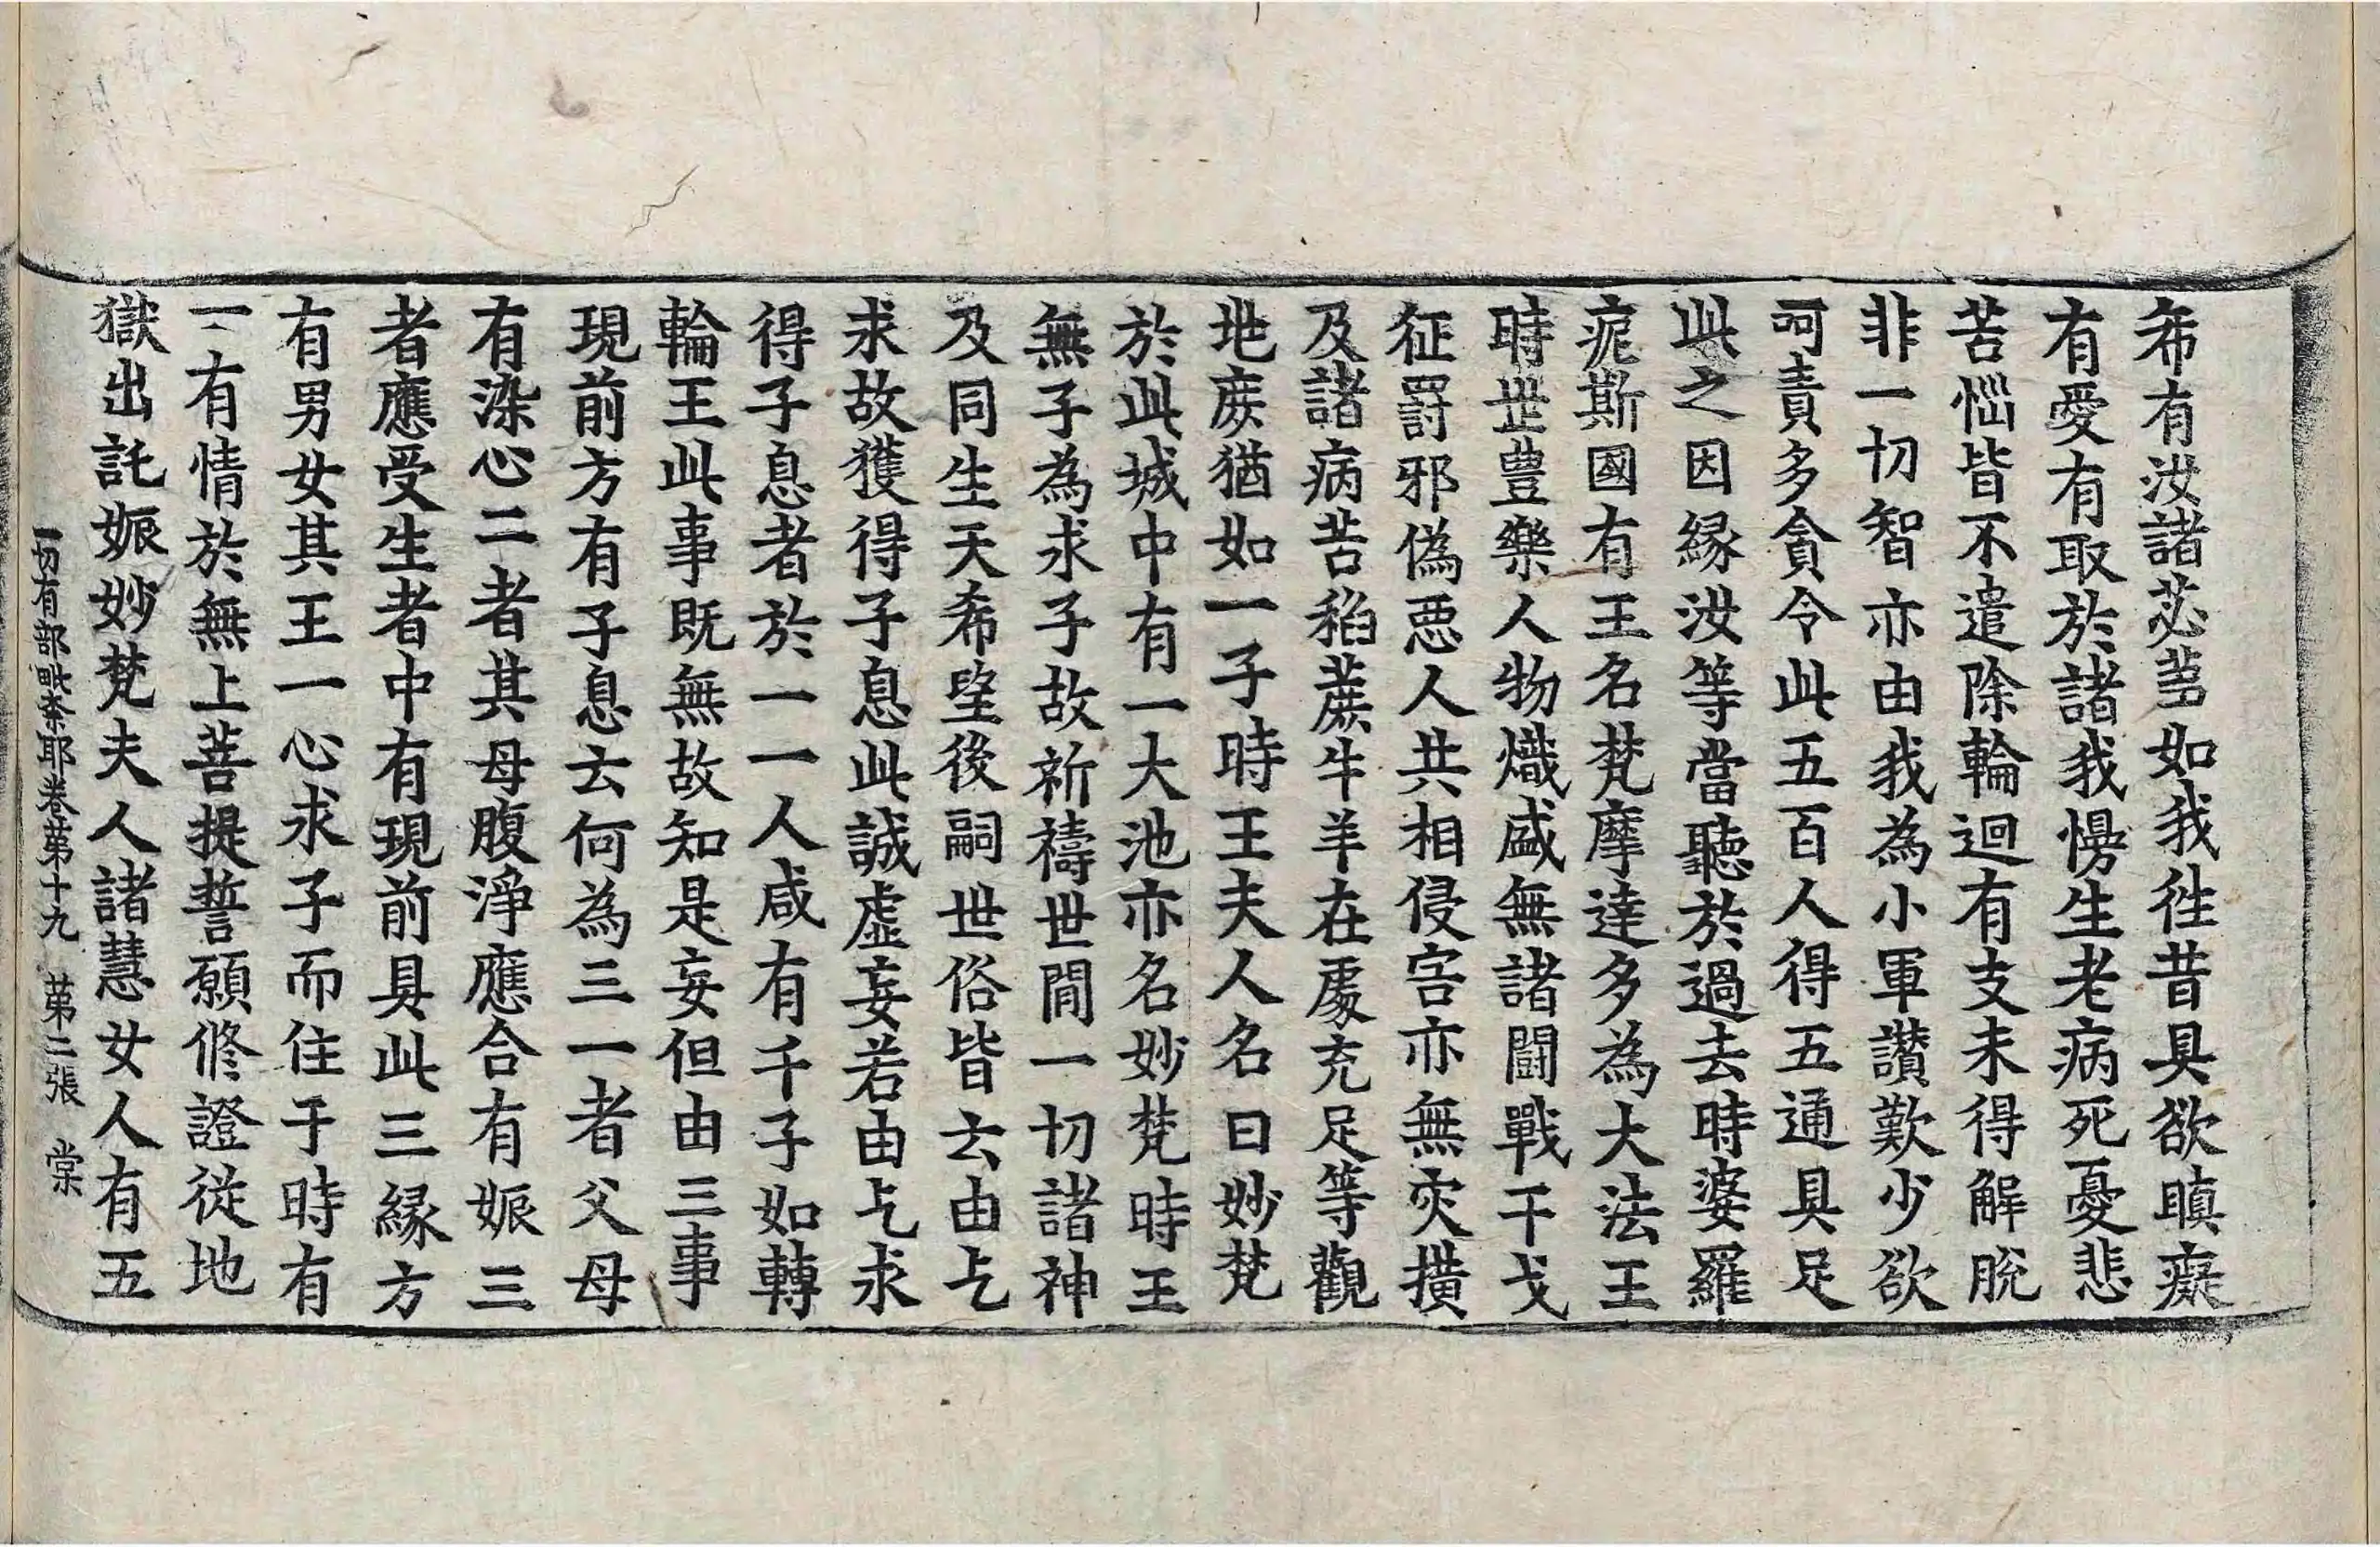 希有汝諸苾芻如我徃昔具欲瞋癡
有愛有取於諸我慢生老病死憂悲
苦惱皆不遣除輪迴有支未得解脫
非一切智亦由我為小軍讃歎少欲
呵責多貪令此五百人得五通具足
此之因縁汝等當聽於過去時婆羅
痆斯國有王名梵摩達多為大法王
時世豊樂人物熾盛無諸鬪戰干戈
征罸邪偽惡人共相侵害亦無灾撗
及諸病苦稻蔗牛羊在處充足等觀
地庻猶如一子時王夫人名曰妙梵
於此城中有一大池亦名妙梵時王
無子為求子故祈禱世間一切諸神
及同生天希望後嗣世俗皆云由乞
求故獲得子息此誠虛妄若由乞求
得子息者於一一人咸有千子如轉
輪王此事既無故知是妄但由三事
現前方有子息云何為三一者父母
有染心二者其母腹淨應合有娠三
者應受生者中有現前具此三縁方
有男女其王一心求子而住于時有
一有情於無上菩提誓願修證從地
獄出託娠妙梵夫人諸慧女人有五
一切有部毗奈耶卷第十九 第二張 棠